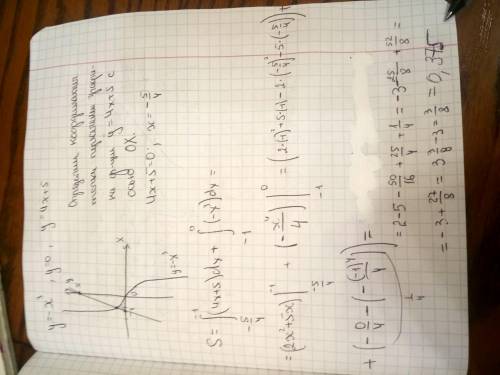 y=-x³, y=0, y=4x+5
Определим координаты
точки пересечения графи-
ка ф-ции y=4x+5 с
осью OX.
4x+5=0; x=-5/4
X
y=-x³
S=∫_{-5/4}^{-1}(4x+5)dx + ∫_{-1}^{0}(-x³)dx=
=(2x²+5x)|_{-5/4}^{-1} + (-x⁴/4)|_{-1}^{0} =(2·(-1)²+5·(-1)-2·(-5/4)²-5·(-5/4))+
+(-0/4-(-(-1)⁴/4))=
1/4
=2-5-50/16+25/4+1/4=-3-25/8+52/8=
=-3+27/8=3 3/8-3=3/8=0,375